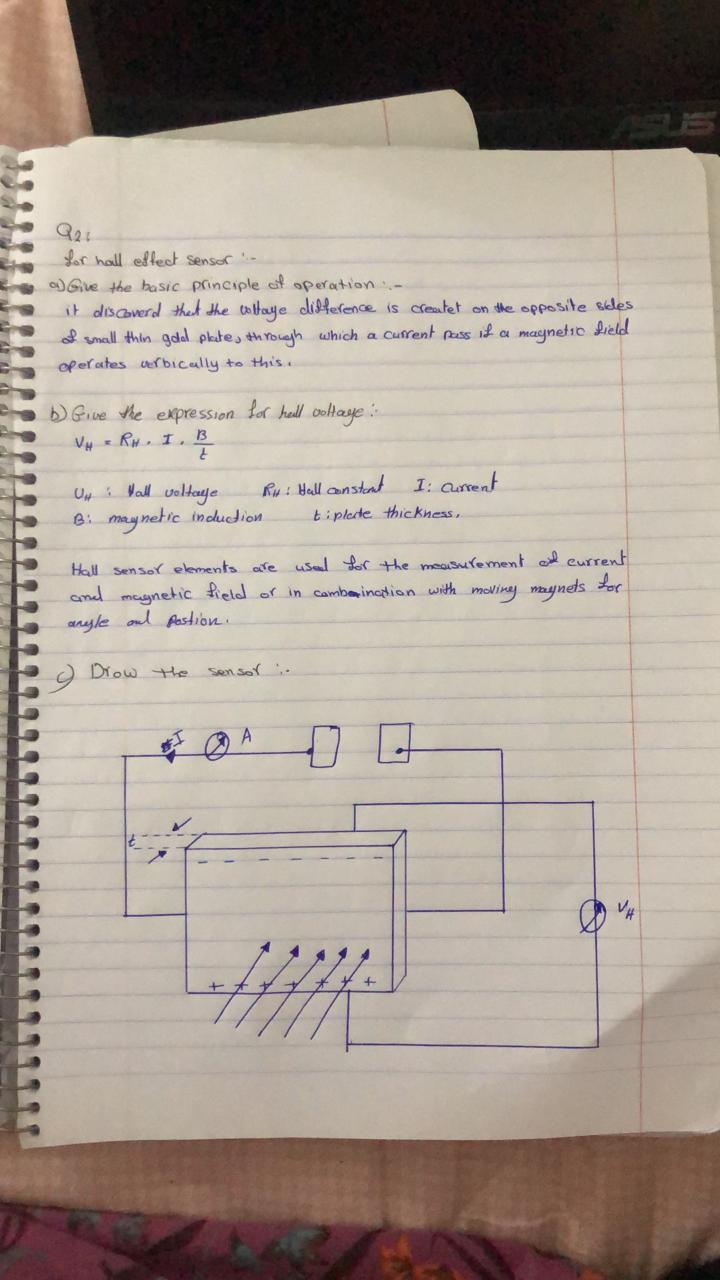 ASUS
Q2:
for hall effect sensor :-
a) Give the basic principle of operation :-
it discoverd that the voltage difference is createt on the opposite sides
of small thin gold plate, through which a current pass if a magnetic field
operates verbically to this.
b) Give the expression for hall voltage :-
VH = RH . I . B/t
UH : Hall voltage RH : Hall constant I : current
B : magnetic induction t : plate thickness.
Hall sensor elements are used for the measurement of current
and magnetic field or in combaination with moving magnets for
angle and postion.
c) Drow the sensor :-
I A
t
- - - - - - -
VH
+ + + + + + +